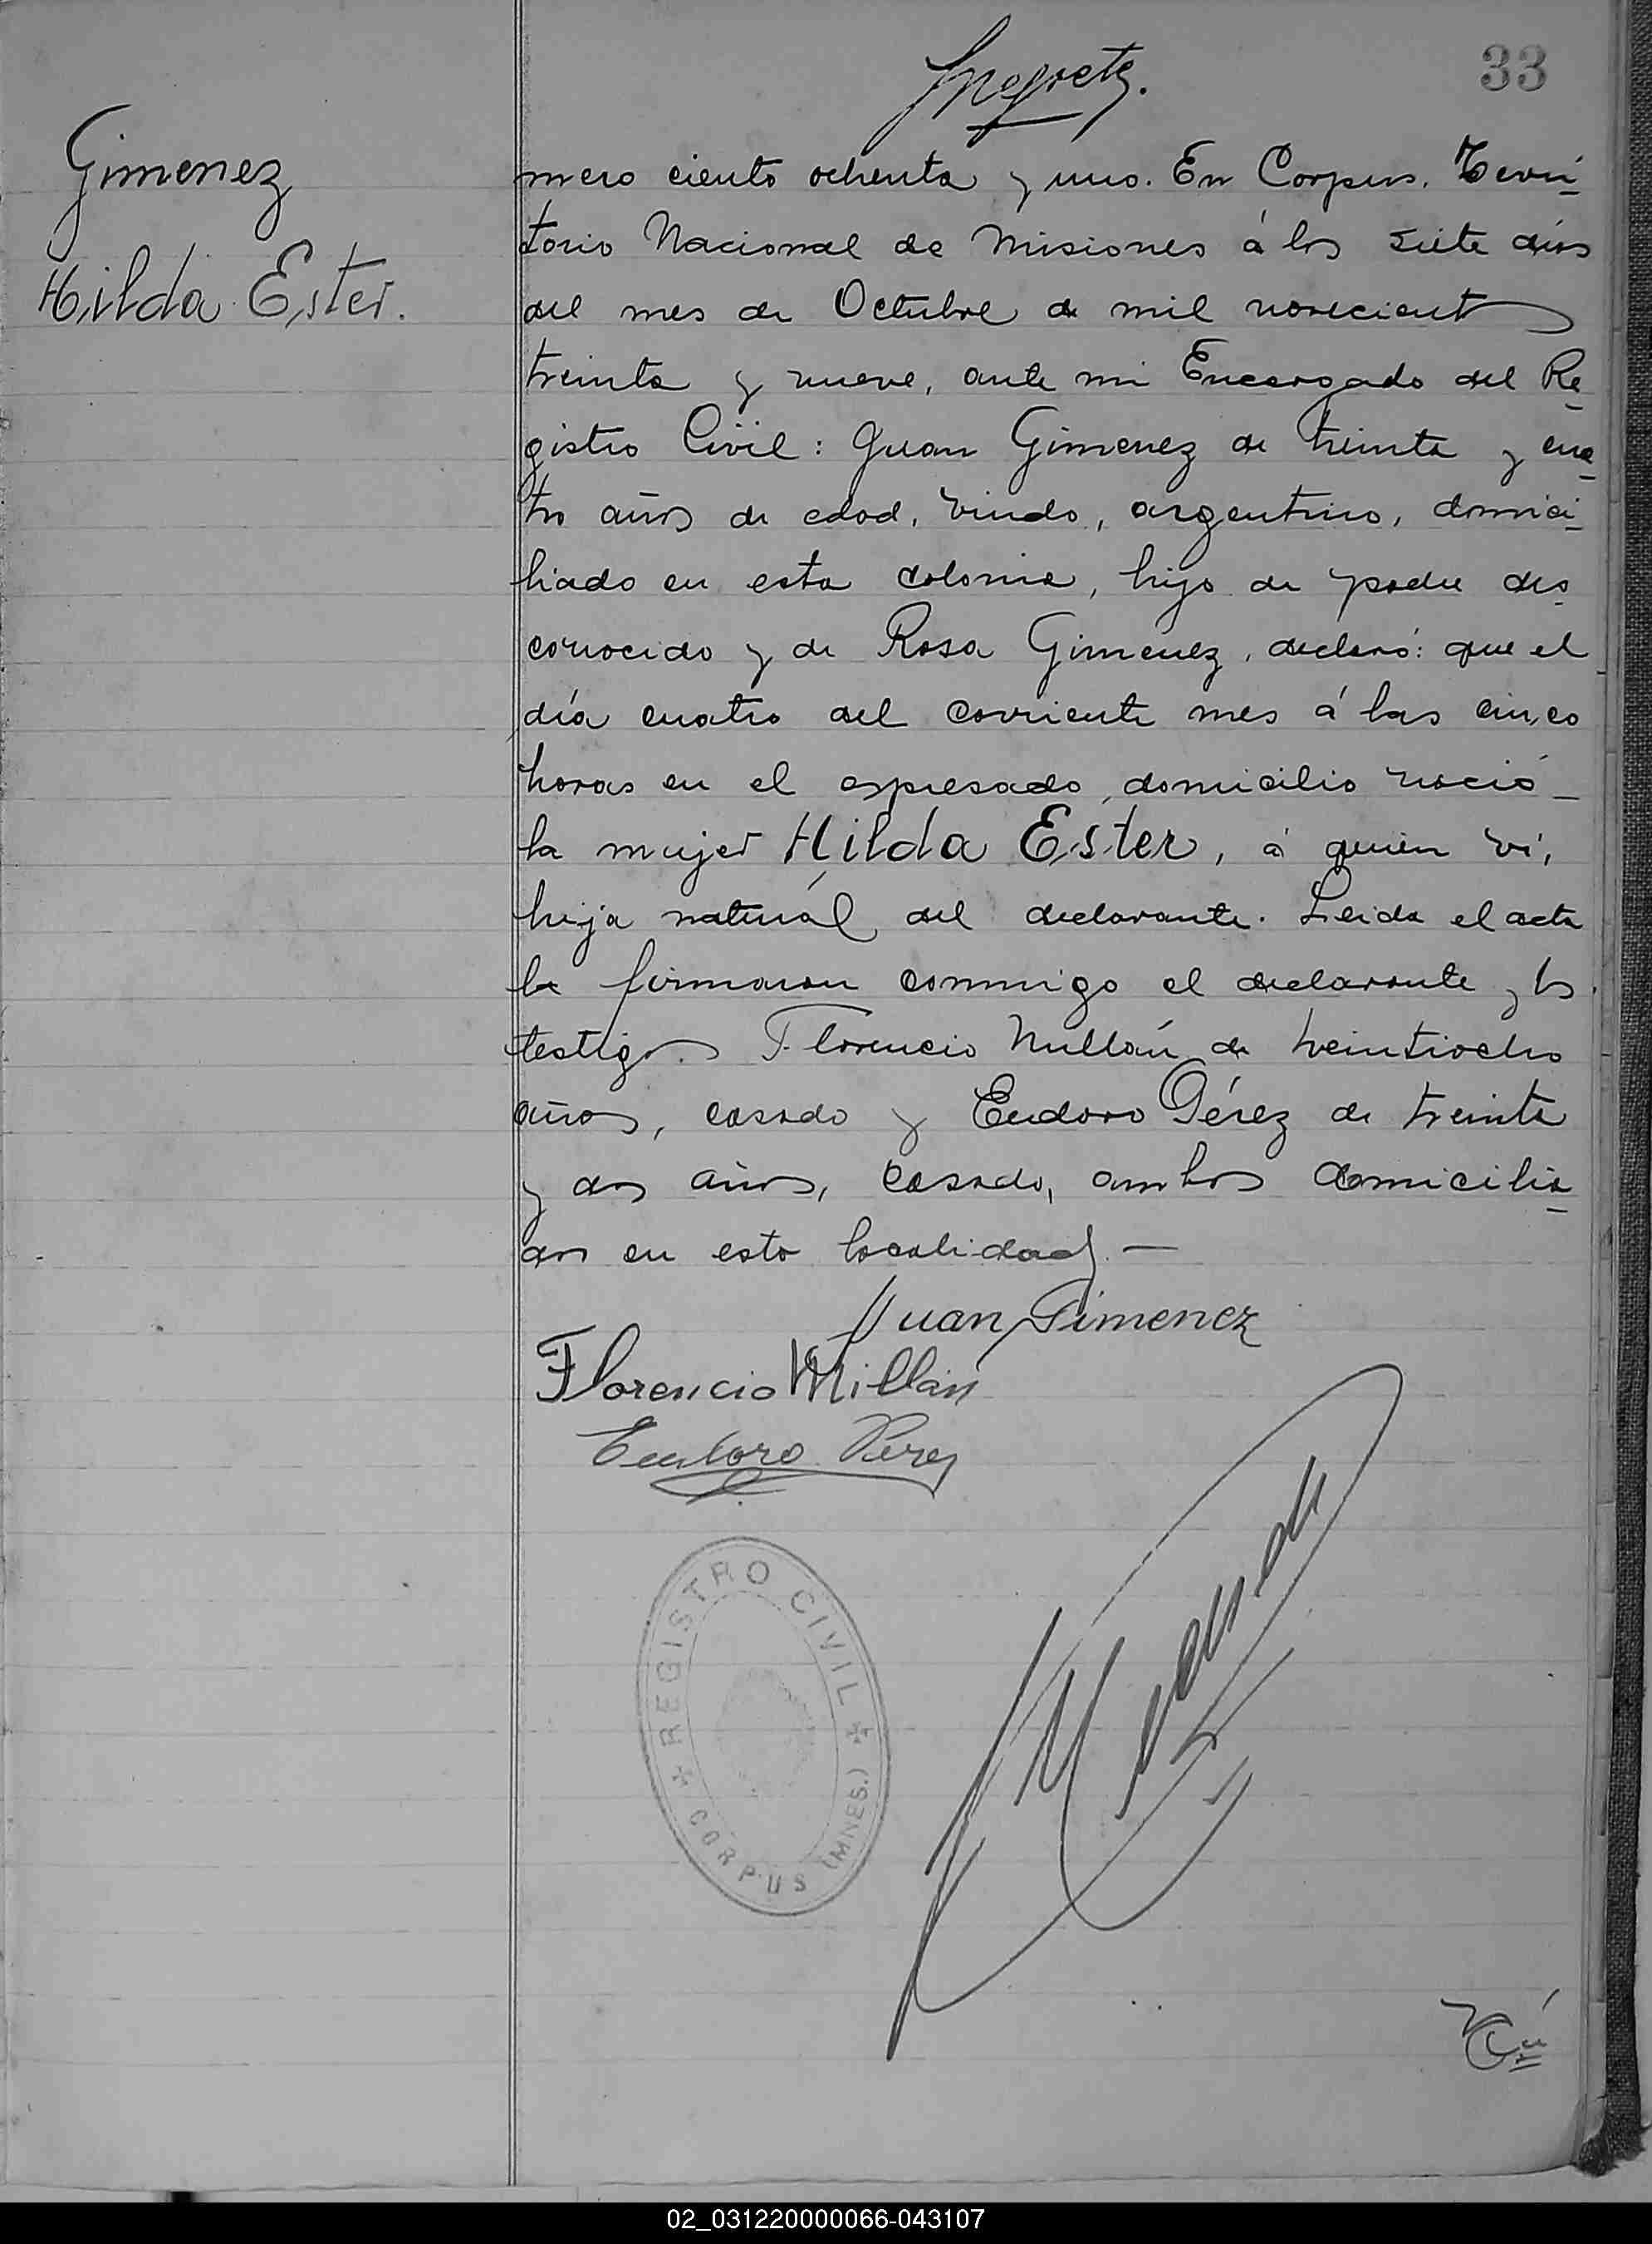 33
Gimenez
Hilda Ester.
mero ciento ochenta y uno. En Corpus, Terri-
torio Nacional de Misiones á los siete dias
del mes de Octubre de mil novecientos
treinta y nueve, ante mi Encargado del Re-
gistro Civil: Juan Gimenez de treinta y cua-
tro años de edad, viudo, argentino, domici-
liado en esta colonia, hijo de padre des-
conocido y de Rosa Gimenez, declaró: que el
día cuatro del corriente mes á las cinco
horas en el espresado domicilio nació
la mujer Hilda Ester, á quien vi,
hija natural del declarante. Leida el acta
la firmaron conmigo el declarante y los
testigos Florencio Millán de veintiocho
años, casado y Eudoro Pérez de treinta
y dos años, casado, ambos domicilia-
dos en esta localidad.—
Juan Gimenez
Florencio Millán
Eudoro Perez
REGISTRO CIVIL
CORPUS (MNES.)
02_031220000066-043107